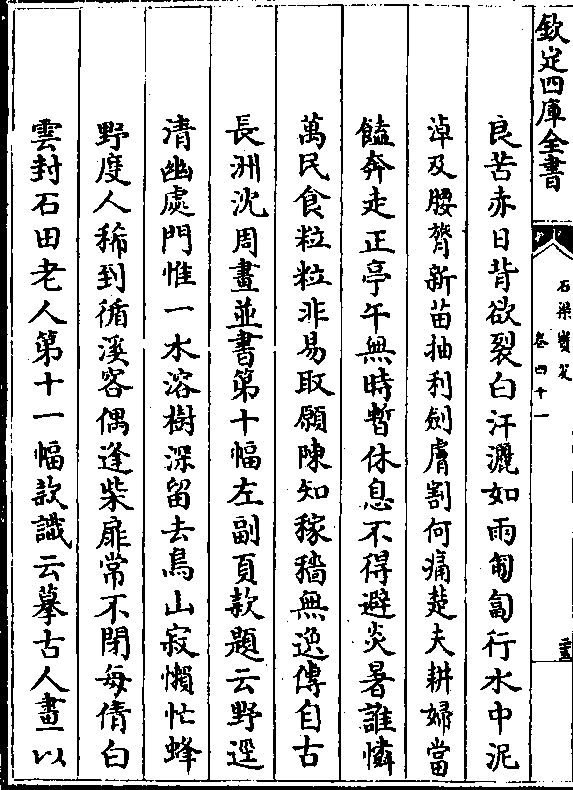 欽定四庫全書
石渠寶笈
卷四十一
良苦赤日背欲裂白汗灑如雨匍匐行水中泥
淖及腰膂新苗抽利劍膚割何痛楚夫耕婦當
饁奔走正亭午無時暫休息不得避炎暑誰憐
萬民食粒粒非易取願陳知稼穡無逸傳自古
長洲沈周畫並書第十幅左副頁款題云野逕
清幽處門惟一水溶樹深留去鳥山寂懶忙蜂
野度人稀到循溪客偶逢柴扉常不閉每倩白
雲封石田老人第十一幅款識云摹古人畫以